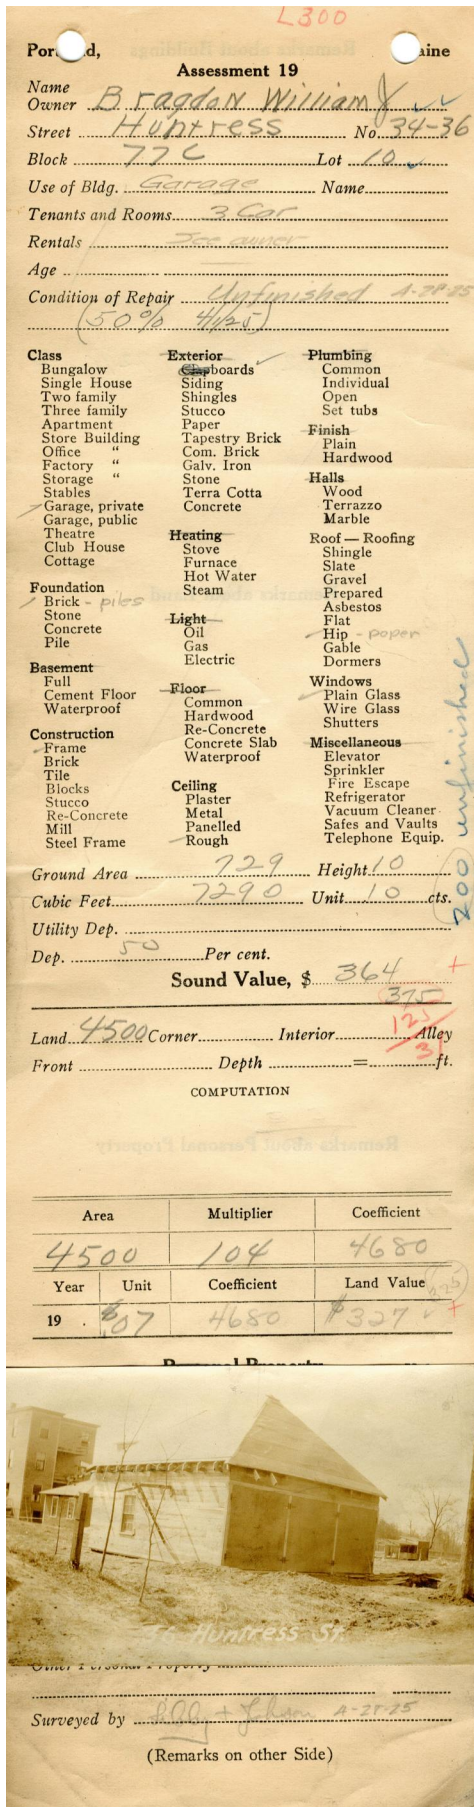 L300
Por d, aine
Assessment 19
Name
Owner Bragdon William J
Street Huntress No. 34-36
Block 77C Lot 10
Use of Bldg. Garage Name
Tenants and Rooms 3 Car
Rentals See owner
Age
Condition of Repair Unfinished 4-28-25
(50% 4/1/25)
Class
Bungalow
Single House
Two family
Three family
Apartment
Store Building
Office "
Factory "
Storage "
Stables
Garage, private
Garage, public
Theatre
Club House
Cottage
Foundation
Brick - piles
Stone
Concrete
Pile
Basement
Full
Cement Floor
Waterproof
Construction
Frame
Brick
Tile
Blocks
Stucco
Re-Concrete
Mill
Steel Frame
Exterior
Clapboards
Siding
Shingles
Stucco
Paper
Tapestry Brick
Com. Brick
Galv. Iron
Stone
Terra Cotta
Concrete
Heating
Stove
Furnace
Hot Water
Steam
Light
Oil
Gas
Electric
Floor
Common
Hardwood
Re-Concrete
Concrete Slab
Waterproof
Ceiling
Plaster
Metal
Panelled
Rough
Plumbing
Common
Individual
Open
Set tubs
Finish
Plain
Hardwood
Halls
Wood
Terrazzo
Marble
Roof — Roofing
Shingle
Slate
Gravel
Prepared
Asbestos
Flat
Hip - paper
Gable
Dormers
Windows
Plain Glass
Wire Glass
Shutters
Miscellaneous
Elevator
Sprinkler
Fire Escape
Refrigerator
Vacuum Cleaner
Safes and Vaults
Telephone Equip.
200 unfinished
Ground Area 729 Height 10
Cubic Feet 7290 Unit 10 cts.
Utility Dep.
Dep. 50 Per cent.
Sound Value, $ 364 +
375
125
3
Land 4500 Corner Interior Alley
Front Depth = ft.
COMPUTATION
Area Multiplier Coefficient
4500 104 4680
Year Unit Coefficient Land Value 325
19 . $.07 4680 $327 +
Personal Property
36 Huntress St.
Other Personal Property
Surveyed by Libby + Johson 4-28-25
(Remarks on other Side)